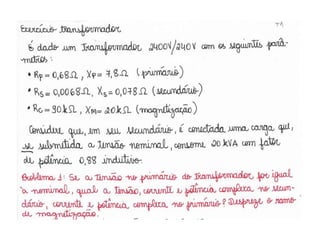 Exercício transformador
É dado um Transformador 2400V/240V com os seguintes parâ-
metros:
• Rp = 0,68Ω, Xp = 7,8Ω (primário)
• Rs = 0,0068Ω, Xs = 0,078Ω (secundário)
• Rc = 30kΩ, Xm = 20kΩ (magnetização)
Considere que, em seu secundário, é conectada uma carga que,
se submetida a tensão nominal, consome 20 kVA com fator
de potência 0,88 indutivo.
Problema 1: Se a Tensão no primário do transformador for igual
a nominal, qual a Tensão, corrente e potência complexa no secun-
dário, corrente e potência complexa no primário? Despreze o ramo
de magnetização.